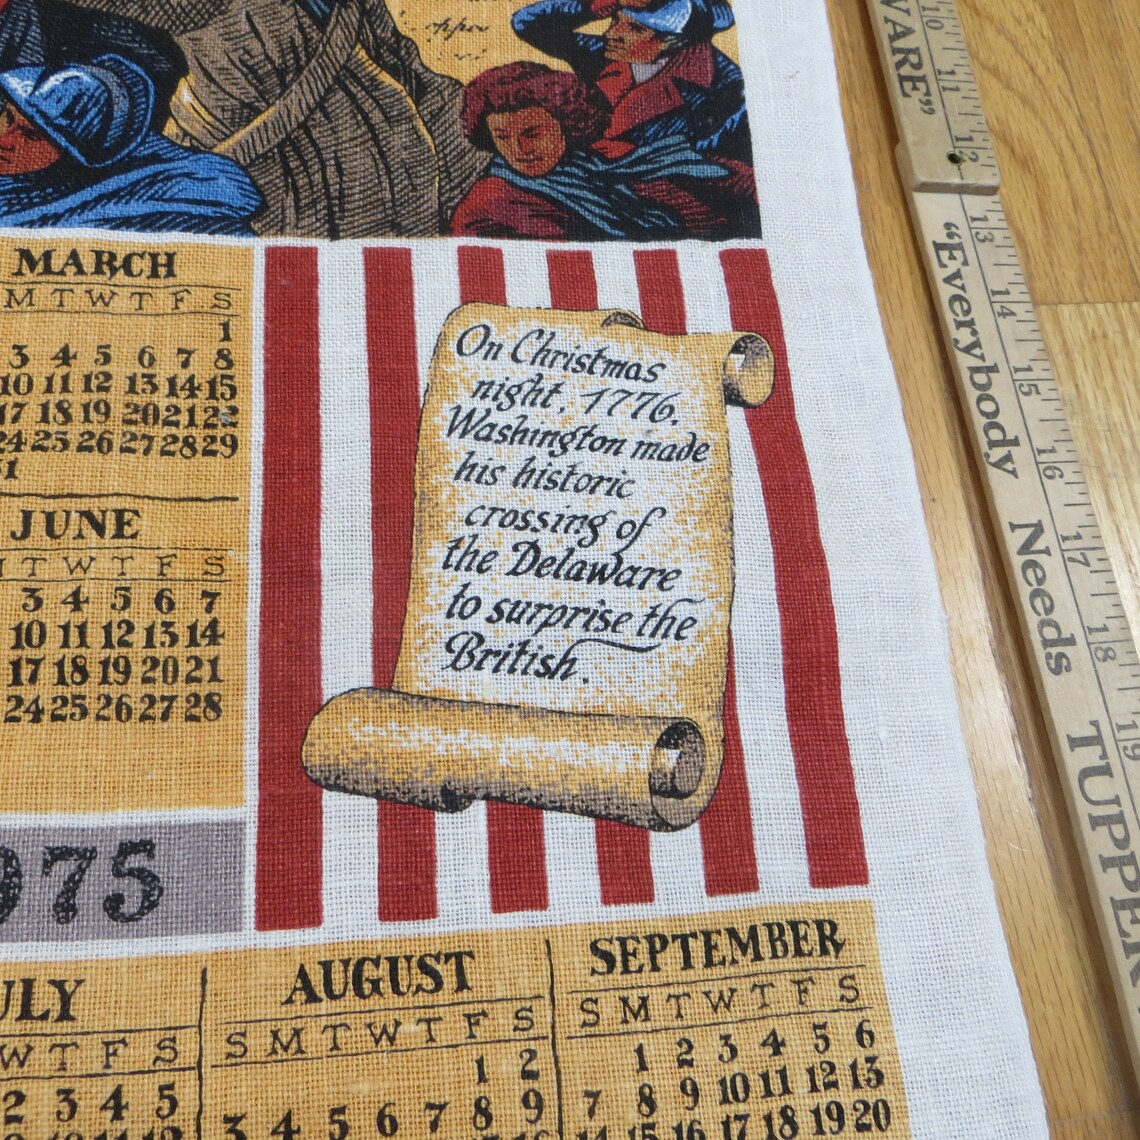 MARCH
M T W T F S
1
3 4 5 6 7 8
10 11 12 13 14 15
17 18 19 20 21 22
24 25 26 27 28 29
31
JUNE
T W T F S
3 4 5 6 7
10 11 12 13 14
17 18 19 20 21
24 25 26 27 28
975
On Christmas
night, 1776,
Washington made
his historic
crossing of
the Delaware
to surprise the
British.
ULY
W T F S
2 3 4 5
AUGUST
S M T W T F S
1 2
3 4 5 6 7 8 9
SEPTEMBER
S M T W T F S
1 2 3 4 5 6
7 8 9 10 11 12 13
14 15 16 17 18 19 20
WARE”
“Everybody Needs TUPPER
10 11 12 13 14 15 16 17 18 19